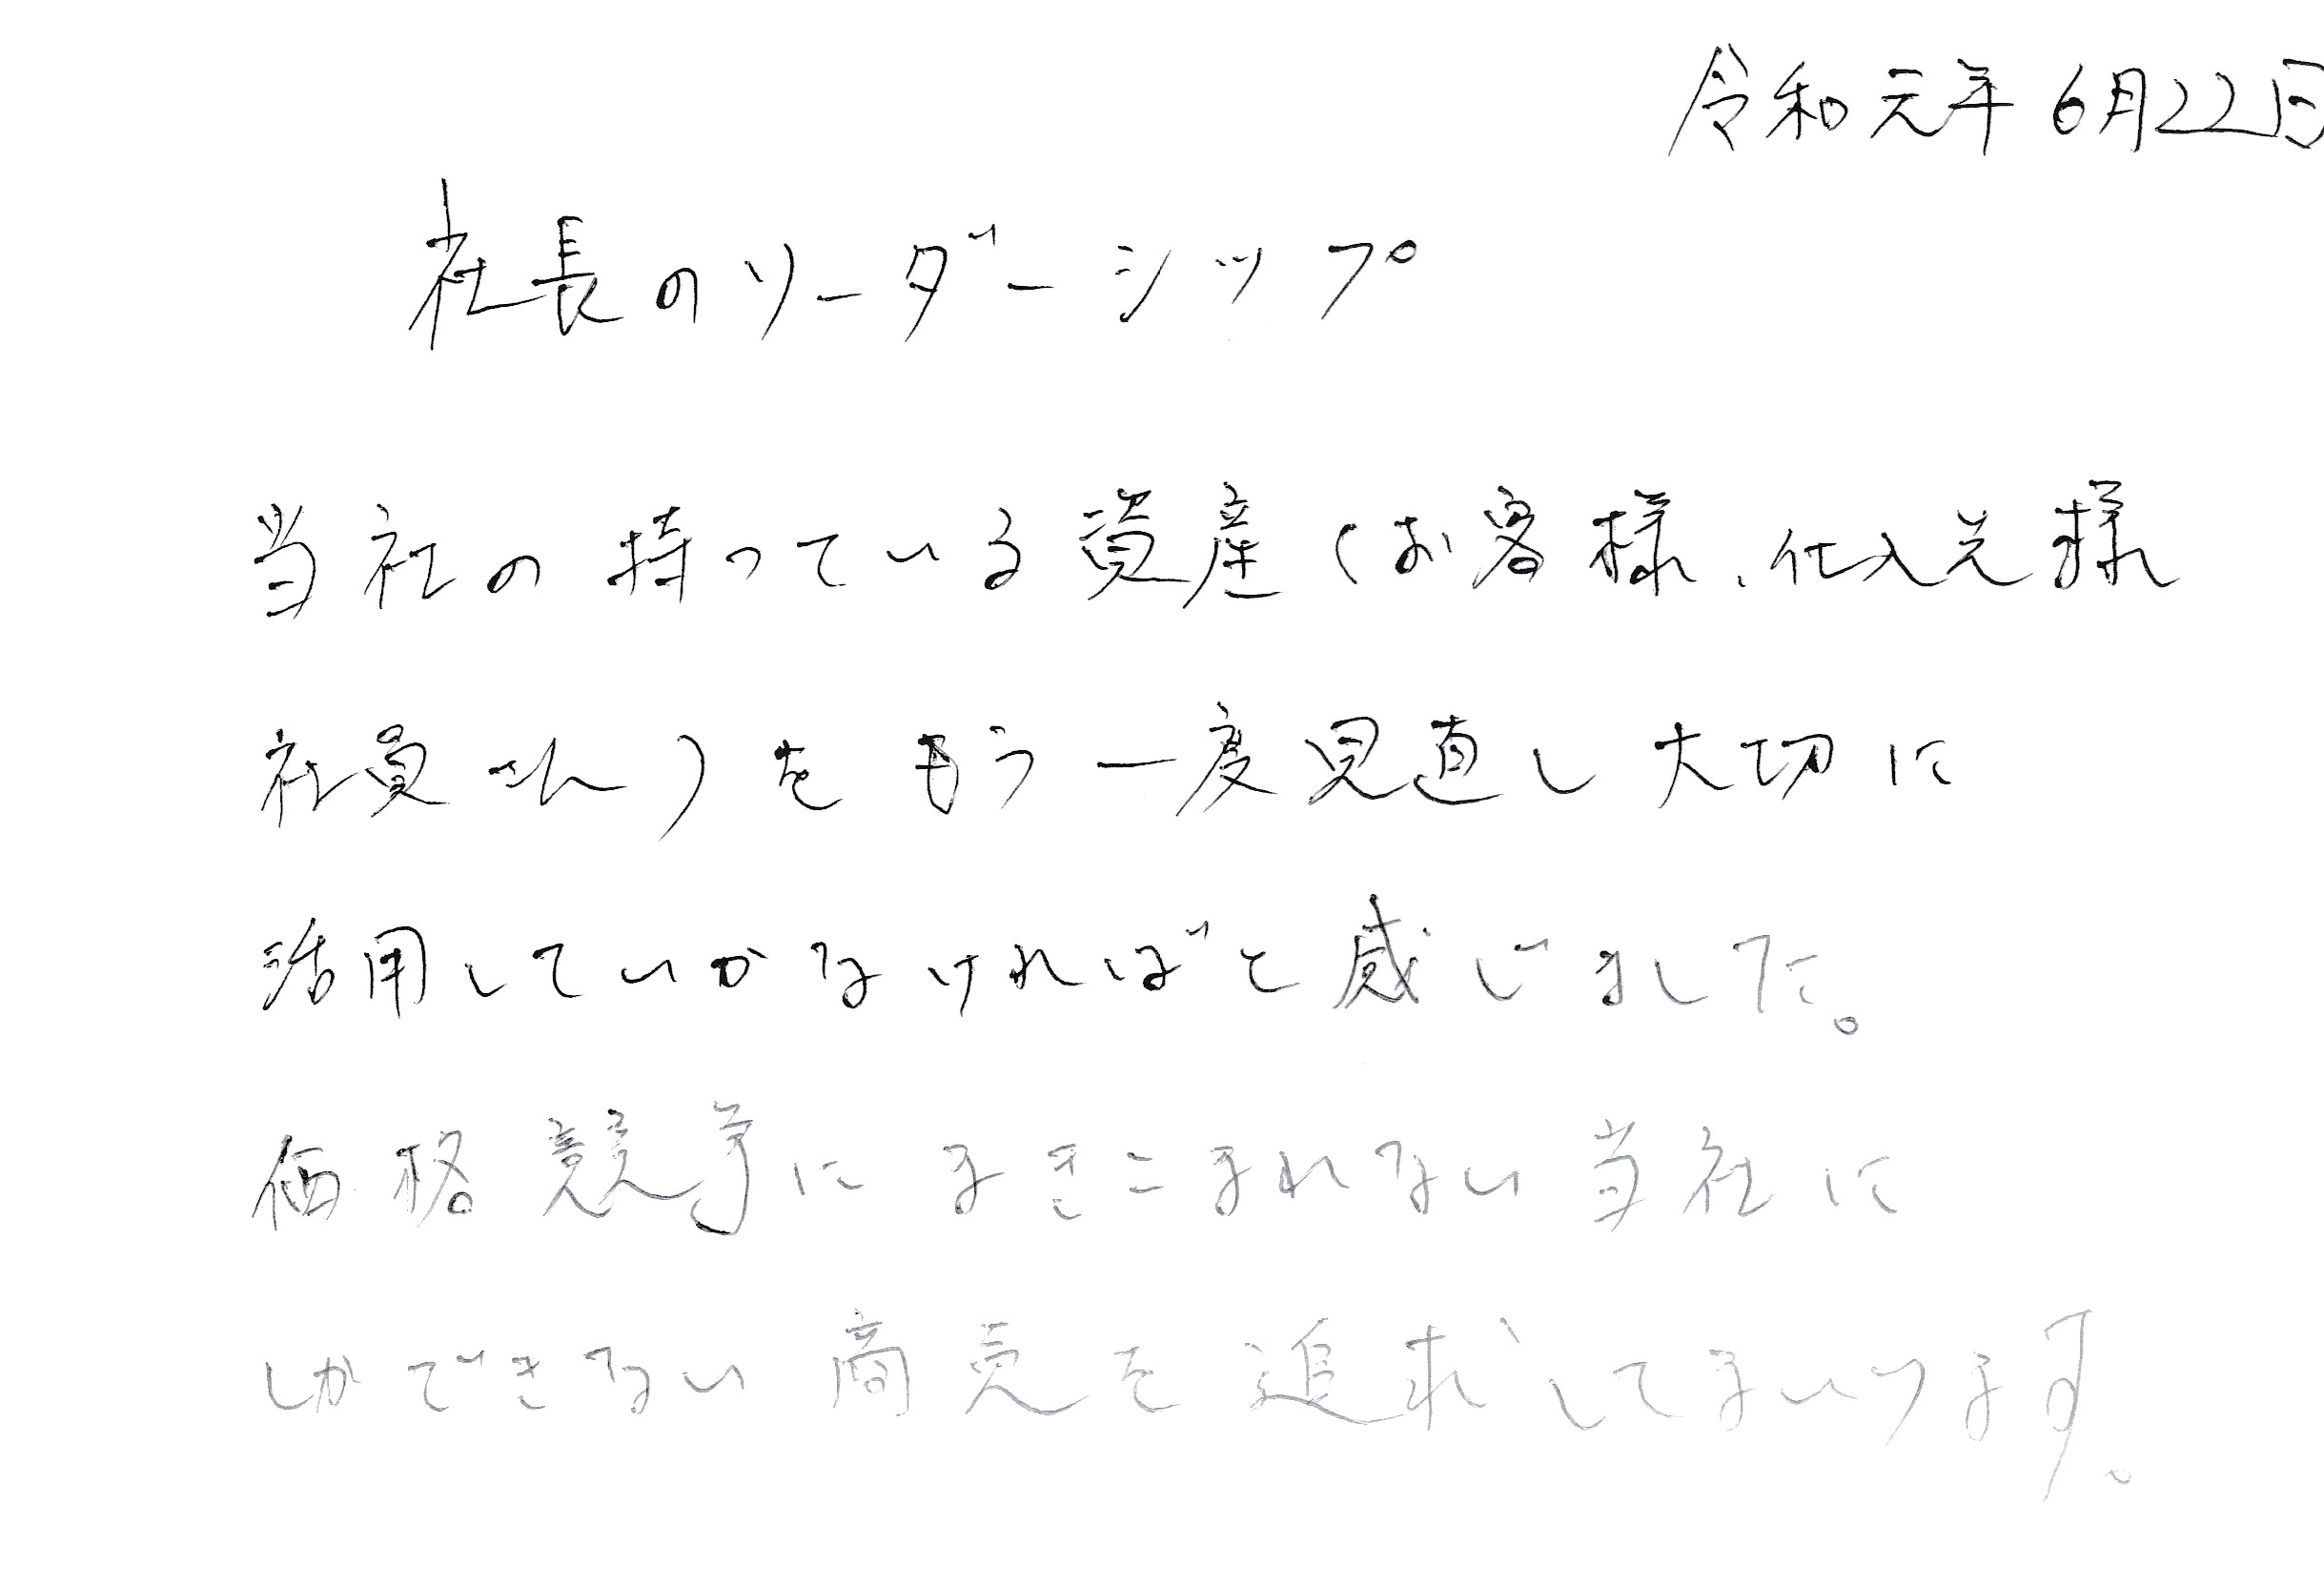 令和元年6月22日
社長のリーダーシップ
当社の持っている資産(お客様、仕入先様
社員さん)をもう一度見直し大切に
活用していかなければと感じました。
価格競争にまきこまれない当社に
しかできない商売を追求してまいります。